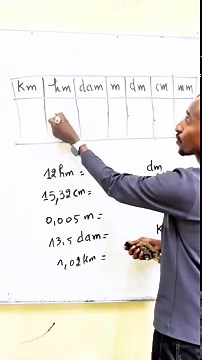 Km hm dam m dm cm mm
12hm= dm
15,32cm=
0,005m=
13,5 dam= K
1,02km=